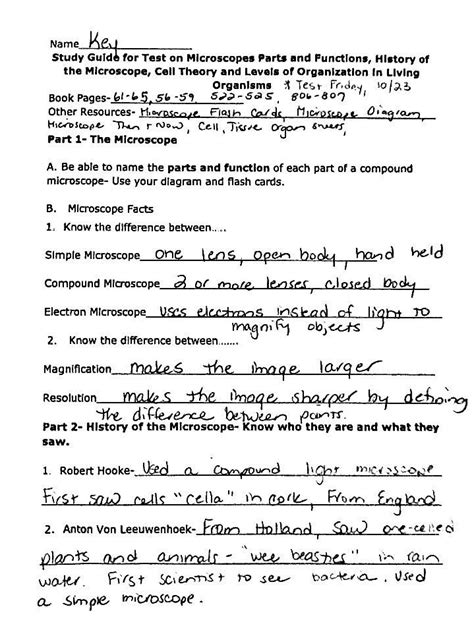 Name Key
Study Guide for Test on Microscopes Parts and Functions, History of
the Microscope, Cell Theory and Levels of Organization in Living
Organisms * Test Friday, 10/23
Book Pages- 61-65, 56-59, 522-525, 806-807
Other Resources- Microscope Flash Cards, Microscope Diagram,
Microscope Then + Now, Cell, Tissue Organ
Part 1- The Microscope
A. Be able to name the parts and function of each part of a compound
microscope- Use your diagram and flash cards.
B. Microscope Facts
1. Know the difference between....
Simple Microscope one lens, open body, hand held
Compound Microscope 2 or more lenses, closed body
Electron Microscope uses electrons instead of light to
magnify objects
2. Know the difference between.......
Magnification makes the image larger
Resolution makes the image sharper by defining
the difference between points.
Part 2- History of the Microscope- Know who they are and what they
saw.
1. Robert Hooke- Used a compound light microscope
First saw cells "cella" in cork, From England
2. Anton Von Leeuwenhoek- From Holland, saw one-celled
plants and animals - "wee beasties" in rain
water. First scientist to see bacteria. Used
a simple microscope.